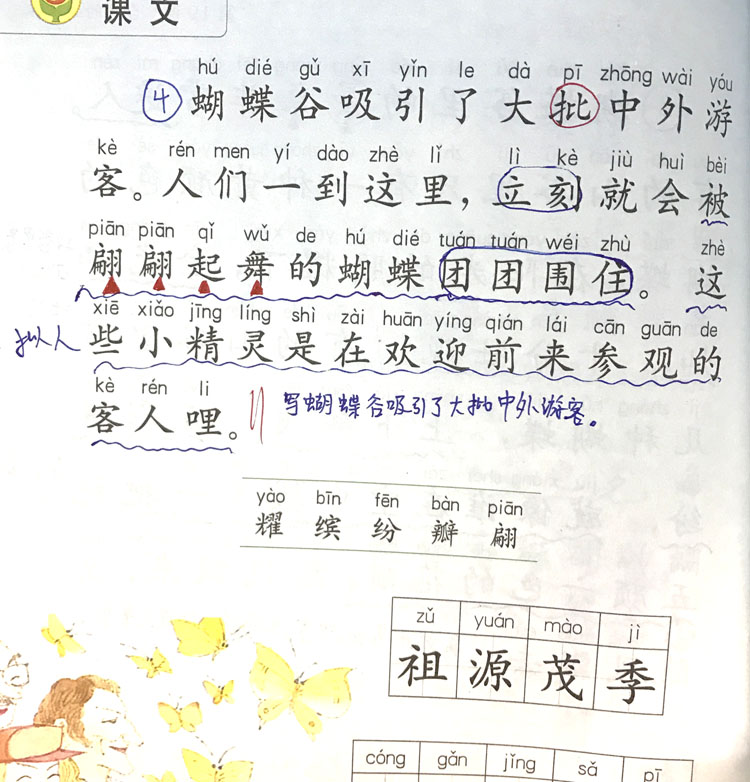 课文
hú dié gǔ xī yǐn le dà pī zhōng wài yóu
④ 蝴蝶谷吸引了大批中外游
kè rén men yí dào zhè lǐ lì kè jiù huì bèi
客。人们一到这里，立刻就会被
piān piān qǐ wǔ de hú dié tuán tuán wéi zhù zhè
翩翩起舞的蝴蝶团团围住。这
xiē xiǎo jīng líng shì zài huān yíng qián lái cān guān de
拟人 些小精灵是在欢迎前来参观的
kè rén li
客人哩。 写蝴蝶谷吸引了大批中外游客。
yào bīn fēn bàn piān
耀 缤 纷 瓣 翩
zǔ yuán mào jì
祖 源 茂 季
cóng gǎn jǐng sǎ pī